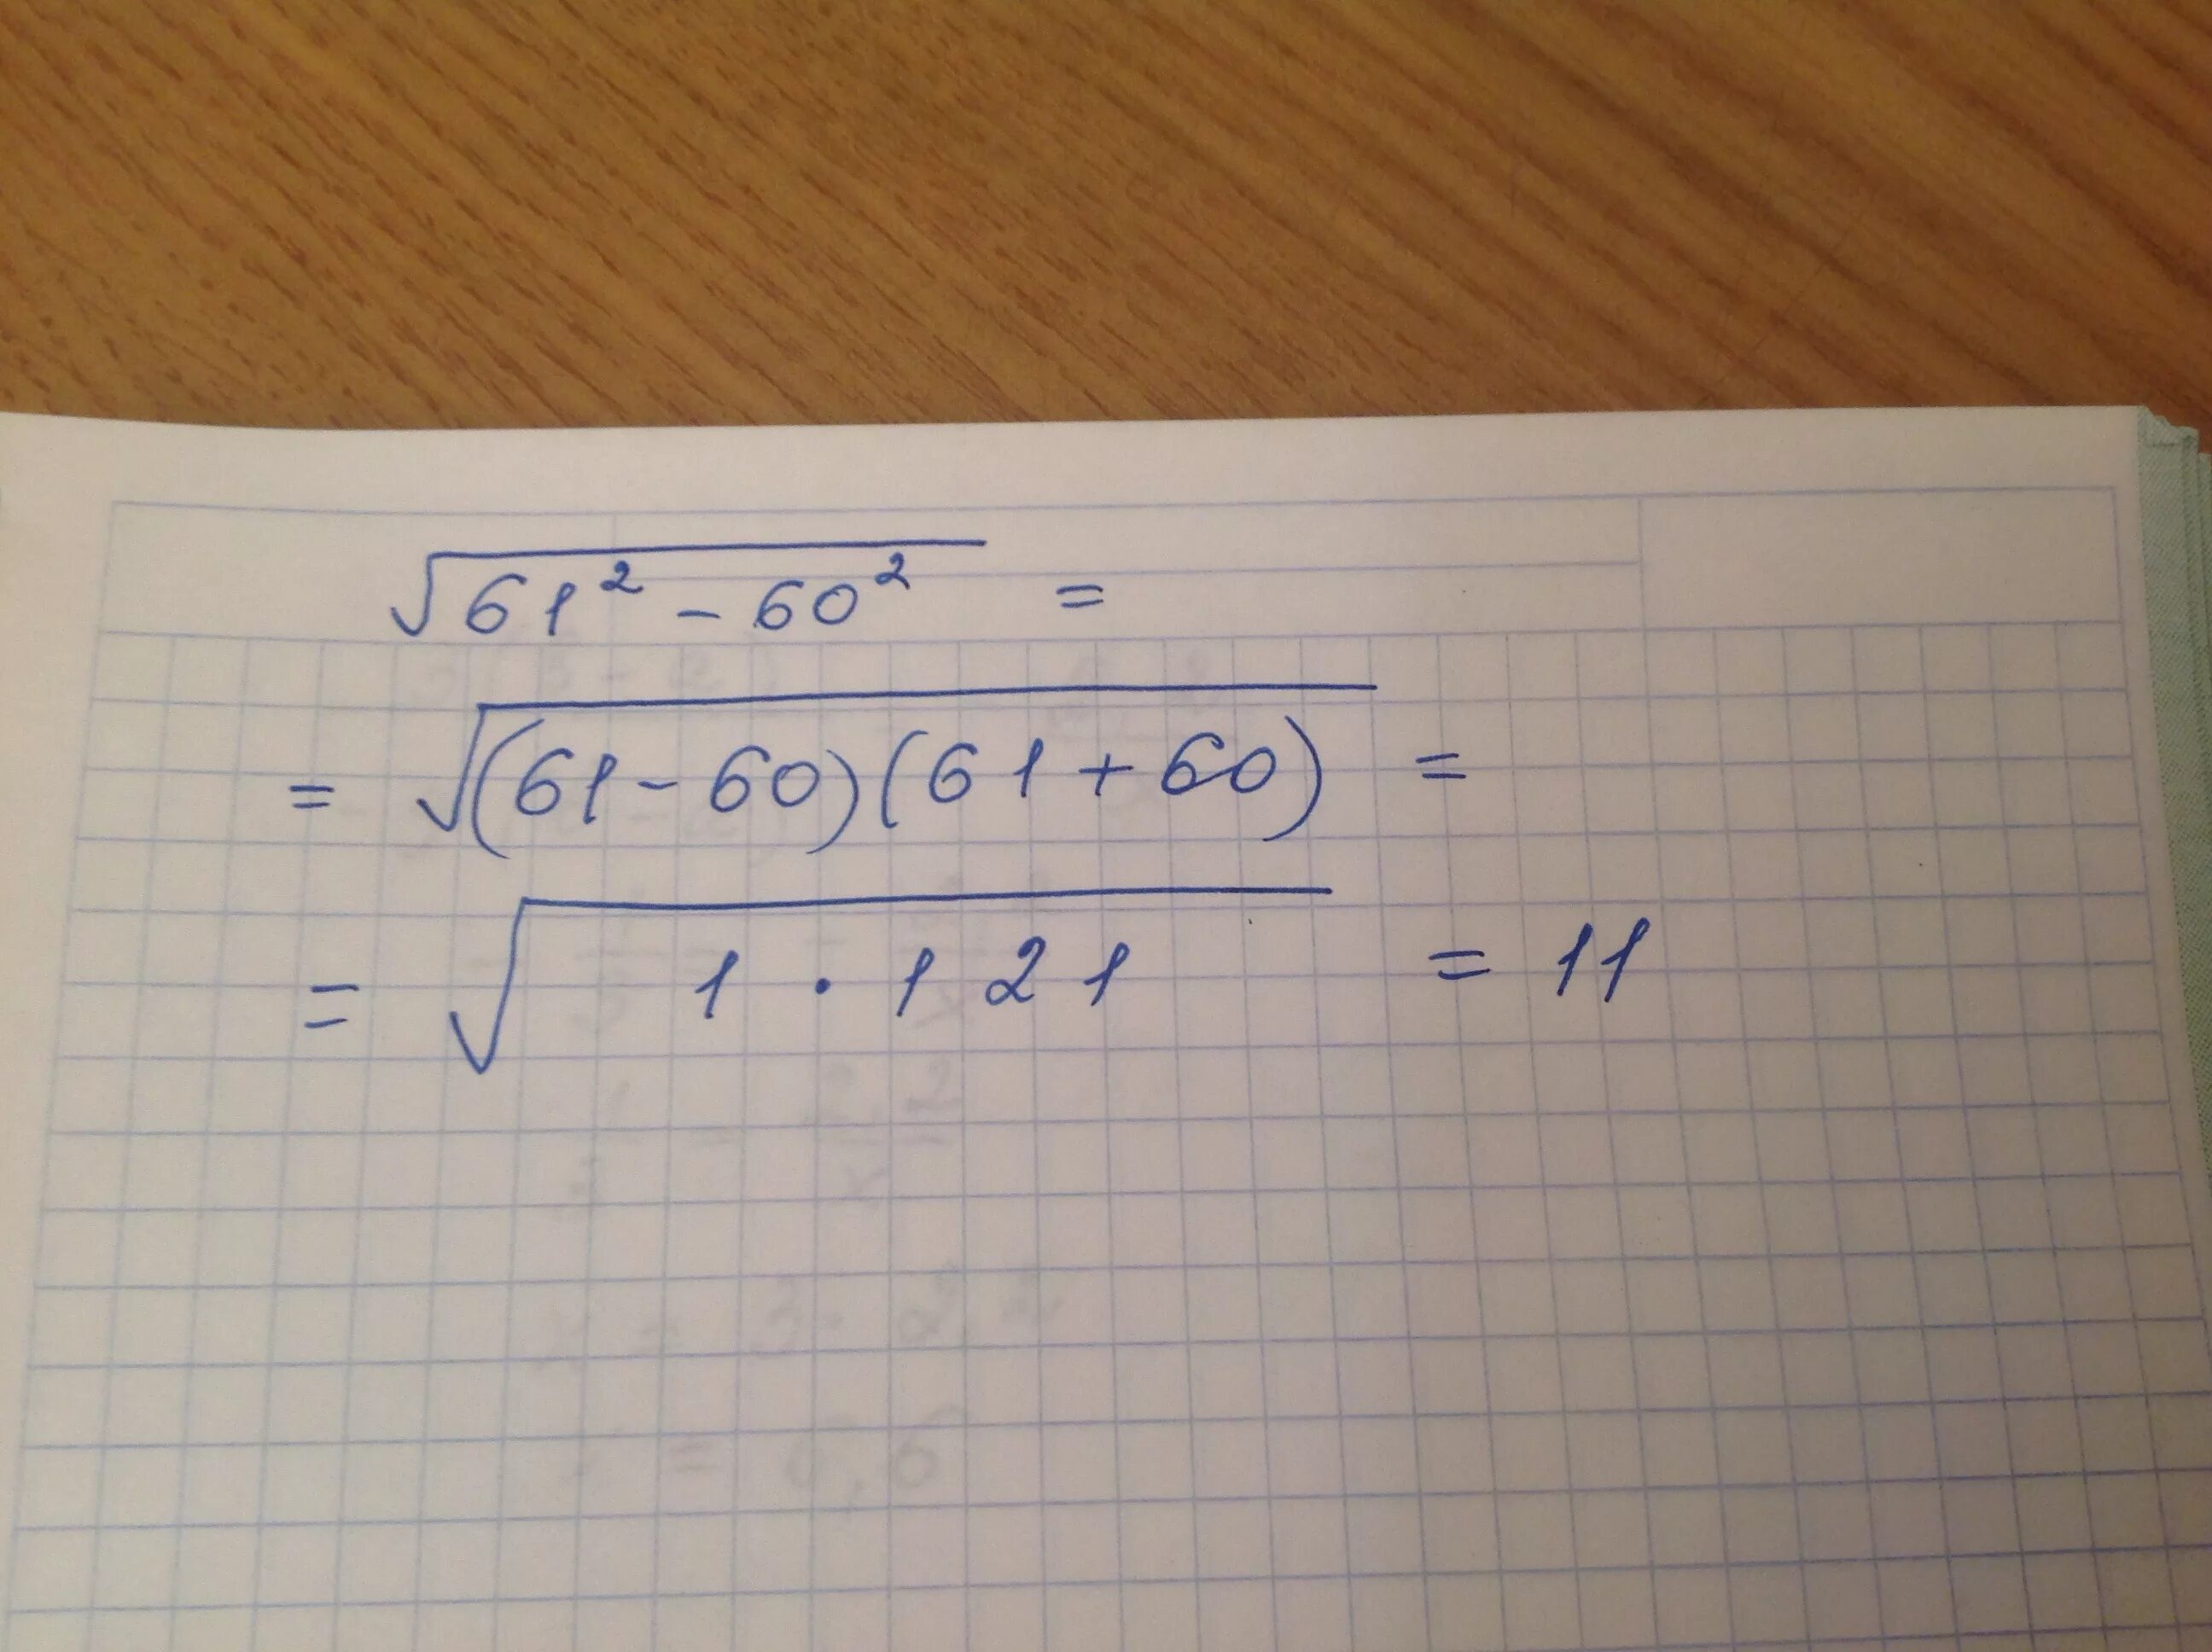 √61² - 60² =
= √(61 - 60)(61 + 60) =
= √1 · 121 = 11